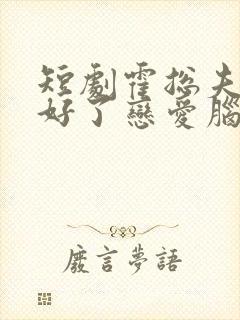 短劇霍總夫
好了戀愛腦
廢言夢語